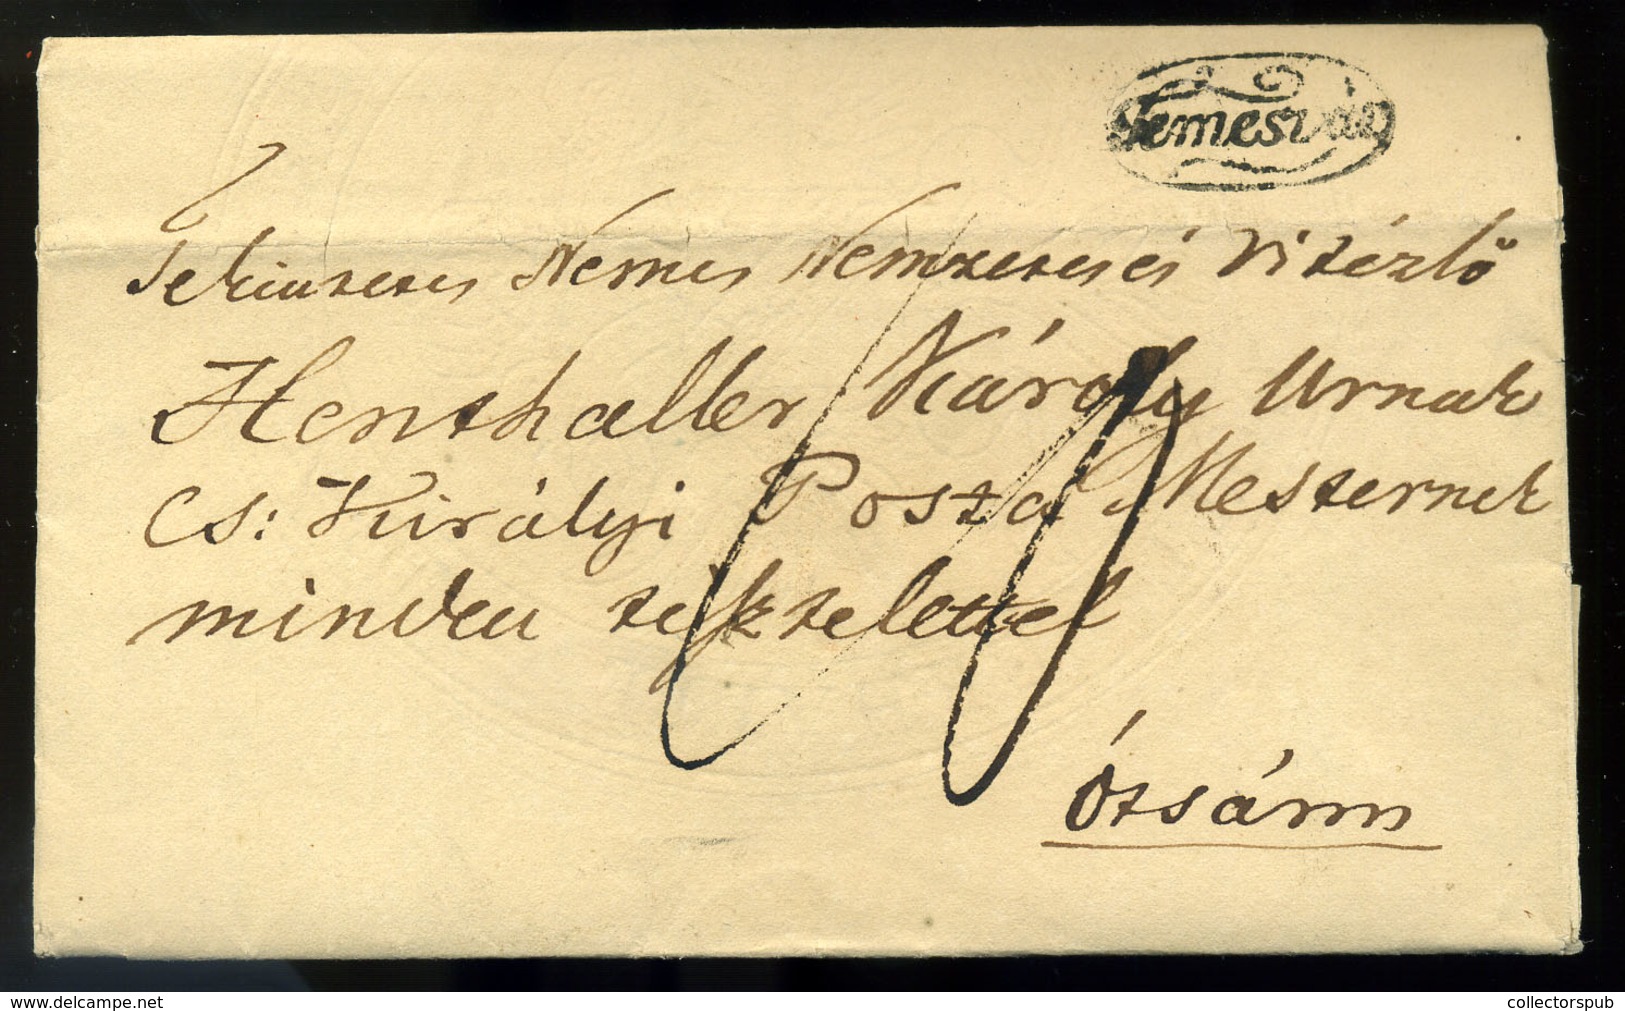 Temesvár
Tekintetes Nemes Nemzetes és Vitézlő
Henthaller Károly Urnak
Cs: Királyi Posta Mesternek
minden tisztelettel
Ótsárm
www.delcampe.net
collectorspub